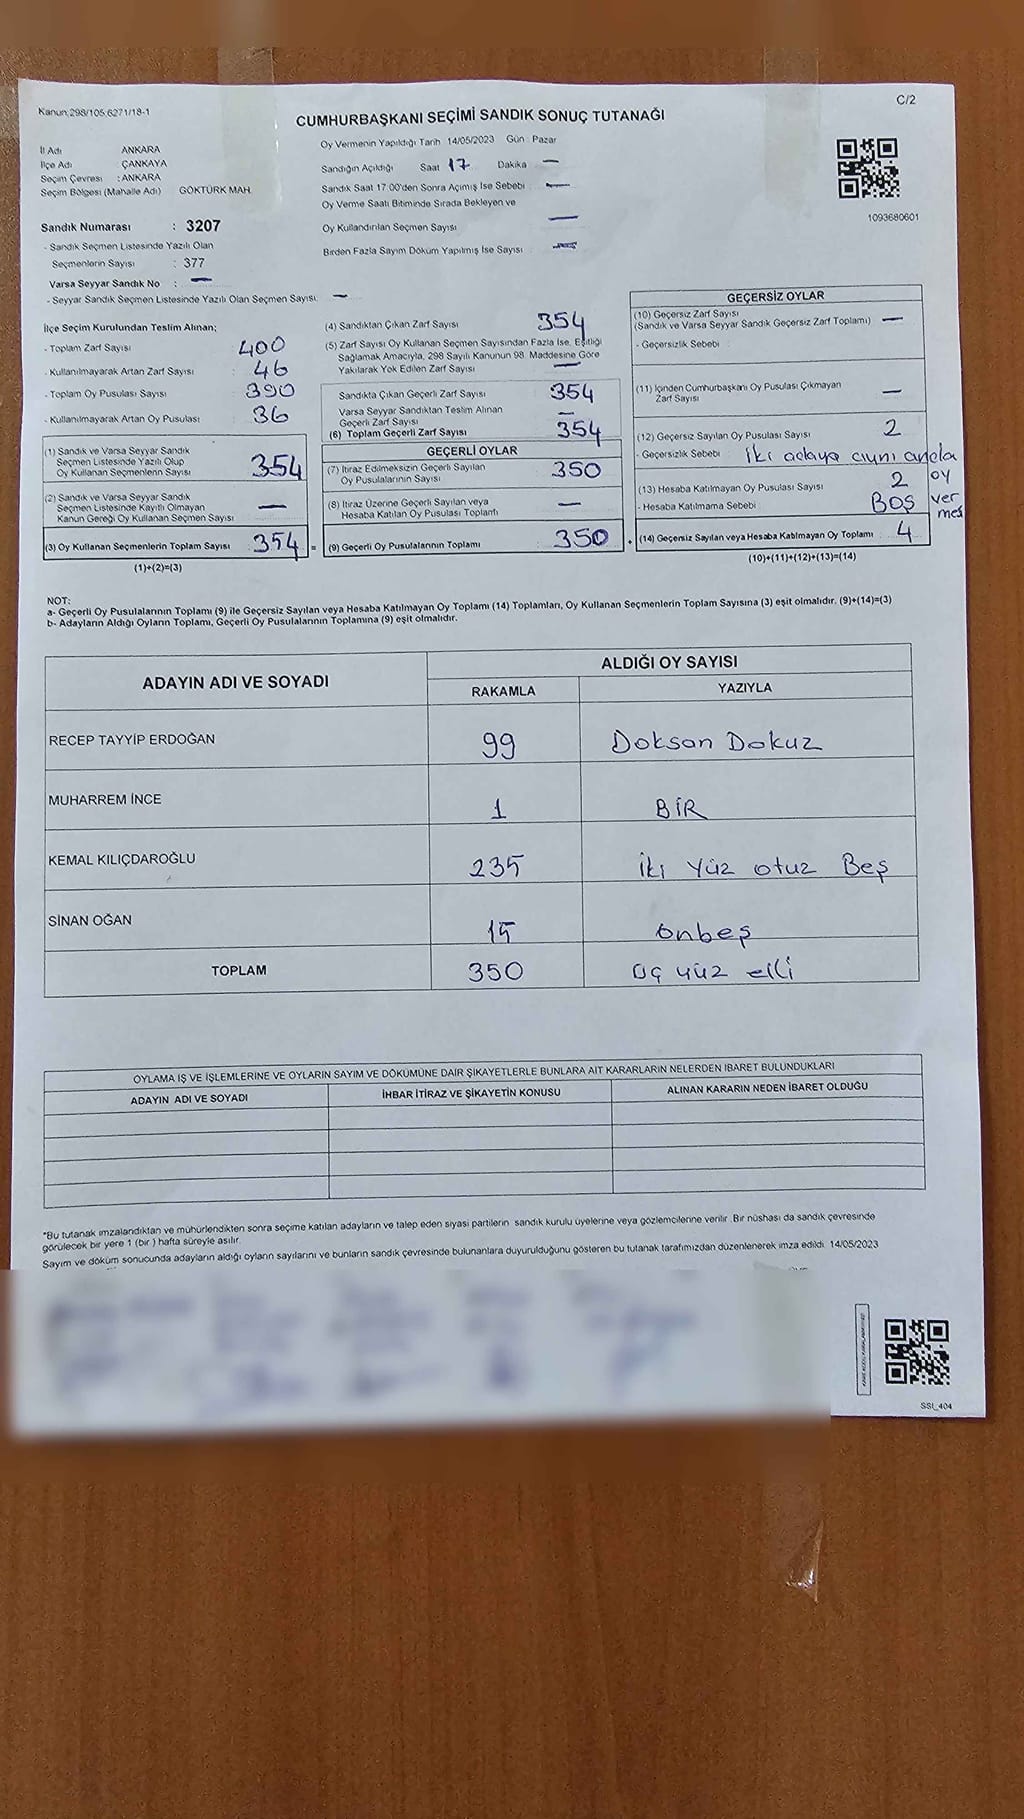 Kanun:298/105,6271/18-1
C/2
CUMHURBAŞKANI SEÇİMİ SANDIK SONUÇ TUTANAĞI
İl Adı ANKARA
İlçe Adı ÇANKAYA
Seçim Çevresi : ANKARA
Seçim Bölgesi (Mahalle Adı) GÖKTÜRK MAH.
Oy Vermenin Yapıldığı Tarih 14/05/2023 Gün : Pazar
Sandığın Açıldığı Saat 17 Dakika —
Sandık Saat 17:00'den Sonra Açımış İse Sebebi —
Oy Verme Saati Bitiminde Sırada Bekleyen ve
Oy Kullandırılan Seçmen Sayısı —
Birden Fazla Sayım Döküm Yapılmış İse Sayısı —
1093680601
Sandık Numarası : 3207
- Sandık Seçmen Listesinde Yazılı Olan
Seçmenlerin Sayısı : 377
Varsa Seyyar Sandık No : —
- Seyyar Sandık Seçmen Listesinde Yazılı Olan Seçmen Sayısı. —
İlçe Seçim Kurulundan Teslim Alınan;
- Toplam Zarf Sayısı 400
- Kullanılmayarak Artan Zarf Sayısı : 46
- Toplam Oy Pusulası Sayısı : 390
- Kullanılmayarak Artan Oy Pusulası : 36
(1) Sandık ve Varsa Seyyar Sandık
Seçmen Listesinde Yazılı Olup
Oy Kullanan Seçmenlerin Sayısı 354
(2) Sandık ve Varsa Seyyar Sandık
Seçmen Listesinde Kayıtlı Olmayan
Kanun Gereği Oy Kullanan Seçmen Sayısı —
(3) Oy Kullanan Seçmenlerin Toplam Sayısı 354 =
(1)+(2)=(3)
(4) Sandıktan Çıkan Zarf Sayısı 354
(5) Zarf Sayısı Oy Kullanan Seçmen Sayısından Fazla İse, Eşitliği
Sağlamak Amacıyla, 298 Sayılı Kanunun 98. Maddesine Göre
Yakılarak Yok Edilen Zarf Sayısı —
Sandıkta Çıkan Geçerli Zarf Sayısı 354
Varsa Seyyar Sandıktan Teslim Alınan
Geçerli Zarf Sayısı —
(6) Toplam Geçerli Zarf Sayısı 354
GEÇERLİ OYLAR
(7) İtiraz Edilmeksizin Geçerli Sayılan
Oy Pusulalarının Sayısı 350
(8) İtiraz Üzerine Geçerli Sayılan veya
Hesaba Katılan Oy Pusulası Toplamı —
(9) Geçerli Oy Pusulalarının Toplamı 350 +
GEÇERSİZ OYLAR
(10) Geçersiz Zarf Sayısı
(Sandık ve Varsa Seyyar Sandık Geçersiz Zarf Toplamı) —
- Geçersizlik Sebebi :
(11) İçinden Cumhurbaşkanı Oy Pusulası Çıkmayan
Zarf Sayısı —
(12) Geçersiz Sayılan Oy Pusulası Sayısı 2
- Geçersizlik Sebebi : iki adaya aynı anda
oy
ver
mesi
(13) Hesaba Katılmayan Oy Pusulası Sayısı 2
- Hesaba Katılmama Sebebi : BOŞ
(14) Geçersiz Sayılan veya Hesaba Katılmayan Oy Toplamı 4
(10)+(11)+(12)+(13)=(14)
NOT:
a- Geçerli Oy Pusulalarının Toplamı (9) ile Geçersiz Sayılan veya Hesaba Katılmayan Oy Toplamı (14) Toplamları, Oy Kullanan Seçmenlerin Toplam Sayısına (3) eşit olmalıdır. (9)+(14)=(3)
b- Adayların Aldığı Oyların Toplamı, Geçerli Oy Pusulalarının Toplamına (9) eşit olmalıdır.
ADAYIN ADI VE SOYADI
ALDIĞI OY SAYISI
RAKAMLA YAZIYLA
RECEP TAYYİP ERDOĞAN 99 Doksan Dokuz
MUHARREM İNCE 1 BİR
KEMAL KILIÇDAROĞLU 235 iki Yüz otuz Beş
SİNAN OĞAN 15 onbeş
TOPLAM 350 üç yüz elli
OYLAMA İŞ VE İŞLEMLERİNE VE OYLARIN SAYIM VE DÖKÜMÜNE DAİR ŞİKAYETLERLE BUNLARA AİT KARARLARIN NELERDEN İBARET BULUNDUKLARI
ADAYIN ADI VE SOYADI İHBAR İTİRAZ VE ŞİKAYETİN KONUSU ALINAN KARARIN NEDEN İBARET OLDUĞU
*Bu tutanak imzalandıktan ve mühürlendikten sonra seçime katılan adayların ve talep eden siyasi partilerin sandık kurulu üyelerine veya gözlemcilerine verilir. Bir nüshası da sandık çevresinde
görülecek bir yere 1 (bir) hafta süreyle asılır.
Sayım ve döküm sonucunda adayların aldığı oyların sayılarını ve bunların sandık çevresinde bulunanlara duyurulduğunu gösteren bu tutanak tarafımızdan düzenlenerek imza edildi. 14/05/2023
SSI_404